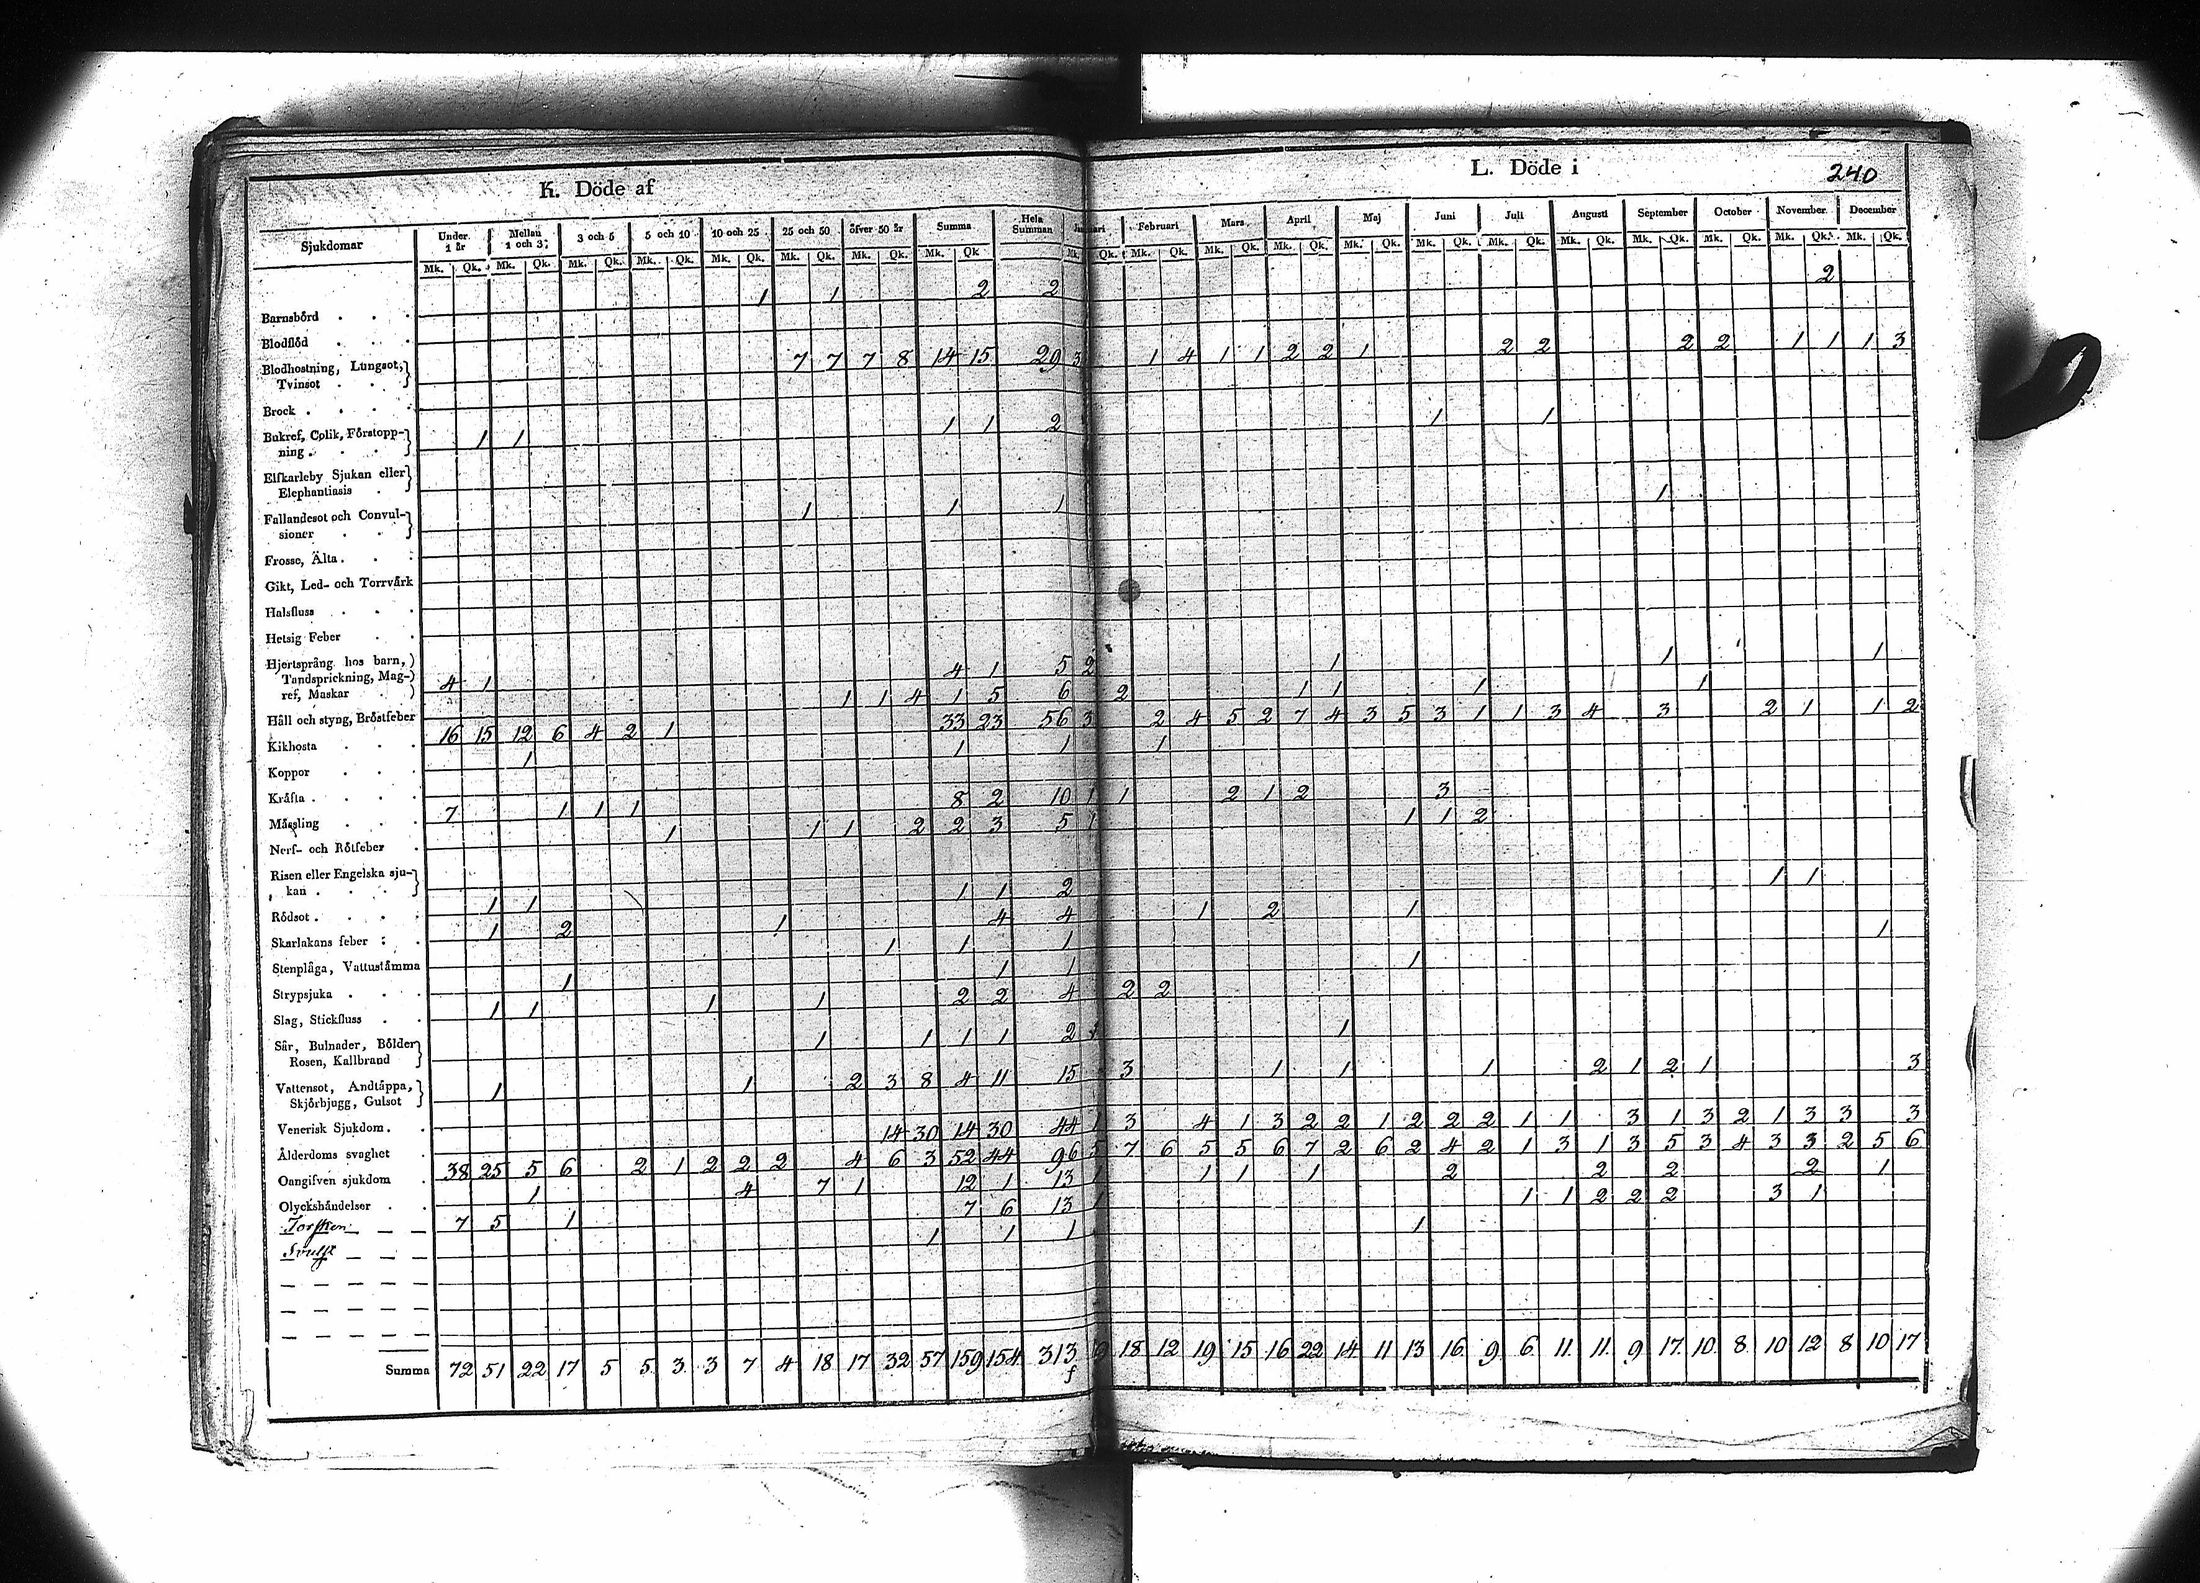 K. Döde af
L. Döde i
240
Sjukdomar | Under 1 år | Mellan 1 och 3 | 3 och 5 | 5 och 10 | 10 och 25 | 25 och 50 | öfver 50 år | Summa | Hela Summan | Februari | Mars | April | Maj | Juni | Juli | Augusti | September | October | November | December
Mk. Qk. Mk. Qk. Mk. Qk. Mk. Qk. Mk. Qk. Mk. Qk. Mk. Qk. Mk. Qk | Qk. Mk. Qk. Mk. Qk. Mk. Qk. Mk. Qk. Mk. Qk. Mk. Qk. Mk. Qk. Mk. Qk. Mk. Qk. Mk. Qk. Mk. Qk.
Barnsbörd . . . 1 1 2 2 2
Blodflöd . . .
Blodhostning, Lungsot,
Tvinsot . . 7 7 7 8 14 15 29 3 1 4 1 1 2 2 1 2 2 2 2 1 1 1 3
Brock . . . .
Bukref, Colik, Förstopp-
ning . . . 1 1 1 1 2 1 1
Elfkarleby Sjukan eller
Elephantiasis .
Fallandesot och Convul-
sioner . . 1 1 1 1
Frosse, Älta . . .
Gikt, Led- och Torrvärk
Halsfluss . . .
Hetsig Feber . .
Hjertsprång hos barn,
Tandsprickning, Mag-
ref, Maskar . 4 1 4 1 5 2 1 1 1
Håll och styng, Bröstfeber 1 1 4 1 5 6 2 1 1 1 1
Kikhosta . . . 16 15 12 6 4 2 1 33 23 56 3 2 4 5 2 7 4 3 5 3 1 1 3 4 3 2 1 1 2
Koppor . . . 1 1 1 1
Kräfta . . . .
Mässling . . . 7 1 1 1 8 2 10 1 1 2 1 2 3
Nerf- och Rötfeber . 1 1 1 2 2 3 5 1 1 1 2
Risen eller Engelska sju-
kan . . .
Rödsot . . . . 1 1 1 1 2 1 1
Skarlakans feber . . 1 2 1 4 4 1 2 1
Stenplåga, Vattustämma 1 1 1 1
Strypsjuka . . . 1 1 1 1
Slag, Stickfluss . . 1 1 1 1 2 2 4 2 2
Sår, Bulnader, Bölder
Rosen, Kallbrand 1 1 1 1 2 1
Vattensot, Andtäppa,
Skjörbjugg, Gulsot 1 1 2 3 8 4 11 15 3 1 1 1 2 1 2 1 3
Venerisk Sjukdom . .
Ålderdoms svaghet . 14 30 14 30 44 1 3 4 1 3 2 2 1 2 2 2 1 1 3 1 3 2 1 3 3 3
Oangifven sjukdom . 38 25 5 6 2 1 2 2 2 4 6 3 52 44 96 5 7 6 5 5 6 7 2 6 2 4 2 1 3 1 3 5 3 4 3 3 2 5 6
Olyckshändelser . . 1 4 7 1 12 1 13 1 1 1 1 2 2 2 2 1
Torsken 7 5 1 7 6 13 1 1 1 2 2 2 3 1
Svulst 1 1 1 1
Summa 72 51 22 17 5 5 3 3 7 4 18 17 32 57 159 154 313 19 18 12 19 15 16 22 14 11 13 16 9 6 11 11 9 17 10 8 10 12 8 10 17